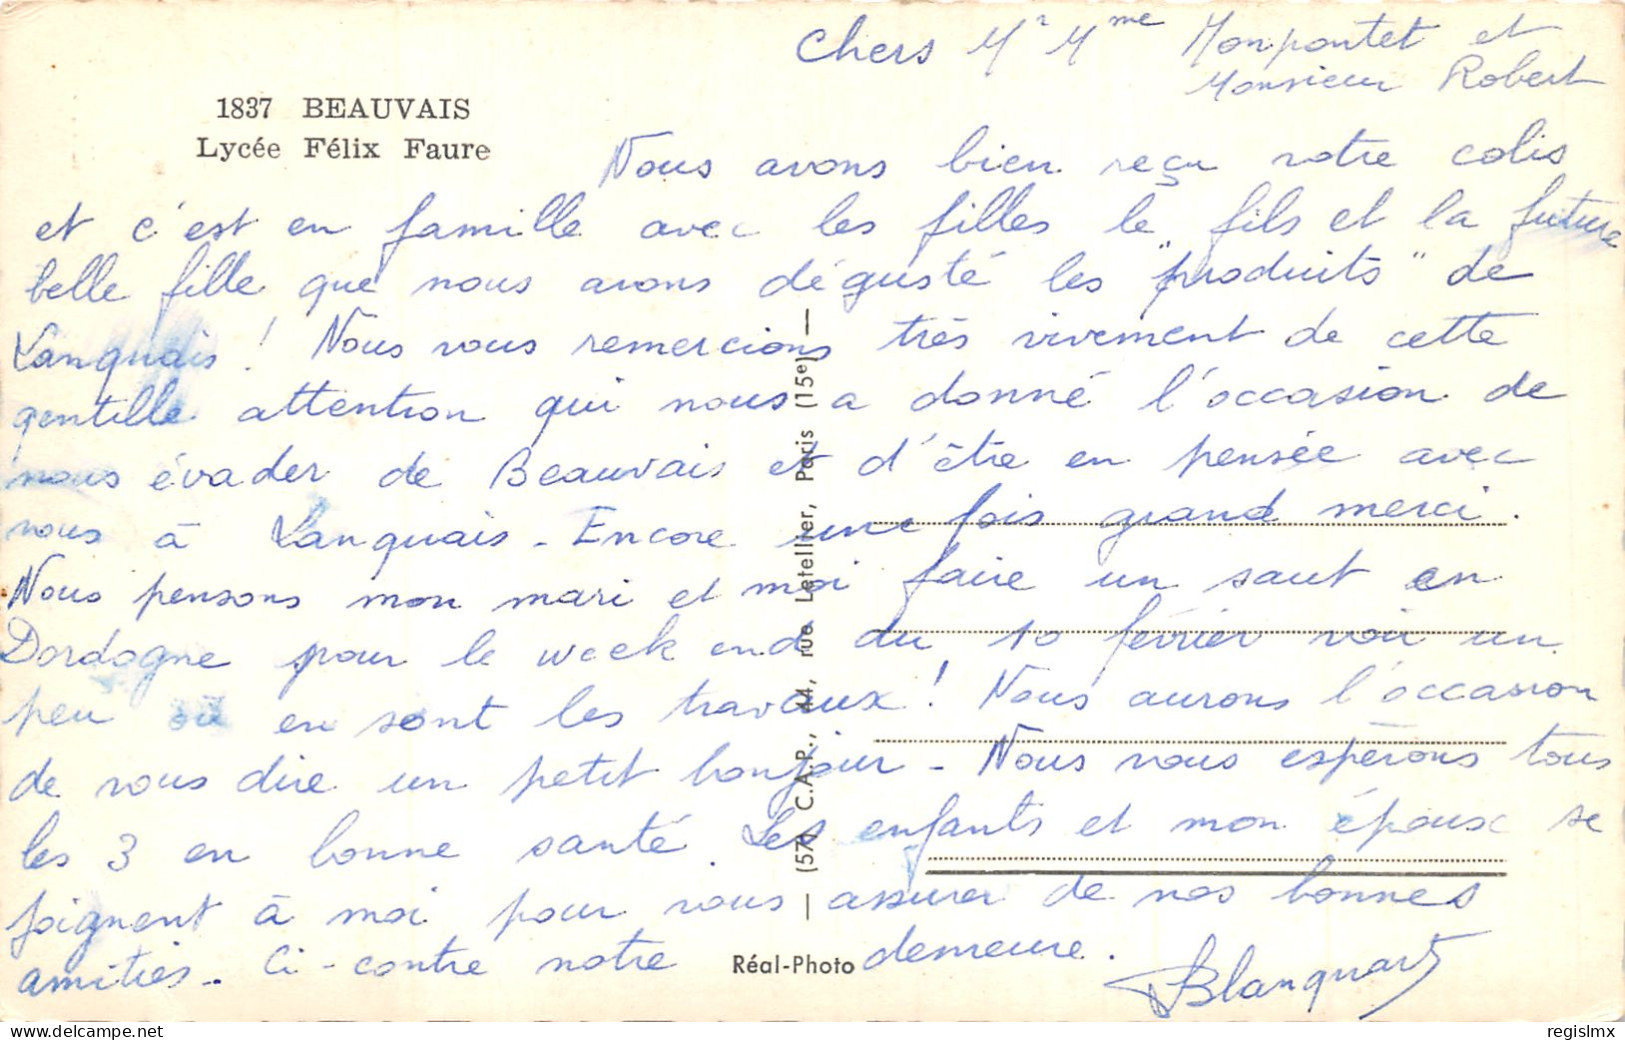 Chers Mr Mme Monpontet et
Monsieur Robert
1837 BEAUVAIS
Lycée Félix Faure
Nous avons bien reçu votre colis
et c'est en famille avec les filles le fils et la future
belle fille que nous avons dégusté les "produits" de
Lanquais ! Nous vous remercions très vivement de cette
gentille attention qui nous a donné l'occasion de
nous évader de Beauvais et d'être en pensée avec
vous à Lanquais - Encore une fois grand merci.
Nous pensons mon mari et moi faire un saut en
Dordogne pour le week end du 10 février voir un
peu où en sont les travaux ! Nous aurons l'occasion
de vous dire un petit bonjour - Nous vous espérons tous
les 3 en bonne santé. Les enfants et mon époux se
joignent à moi pour vous assurer de nos bonnes
amitiés - Ci-contre notre demeure.
Blanquart
(574) C.A.P., 44, rue Letellier, Paris (15e)
Réal-Photo
delcampe.net
regislmx